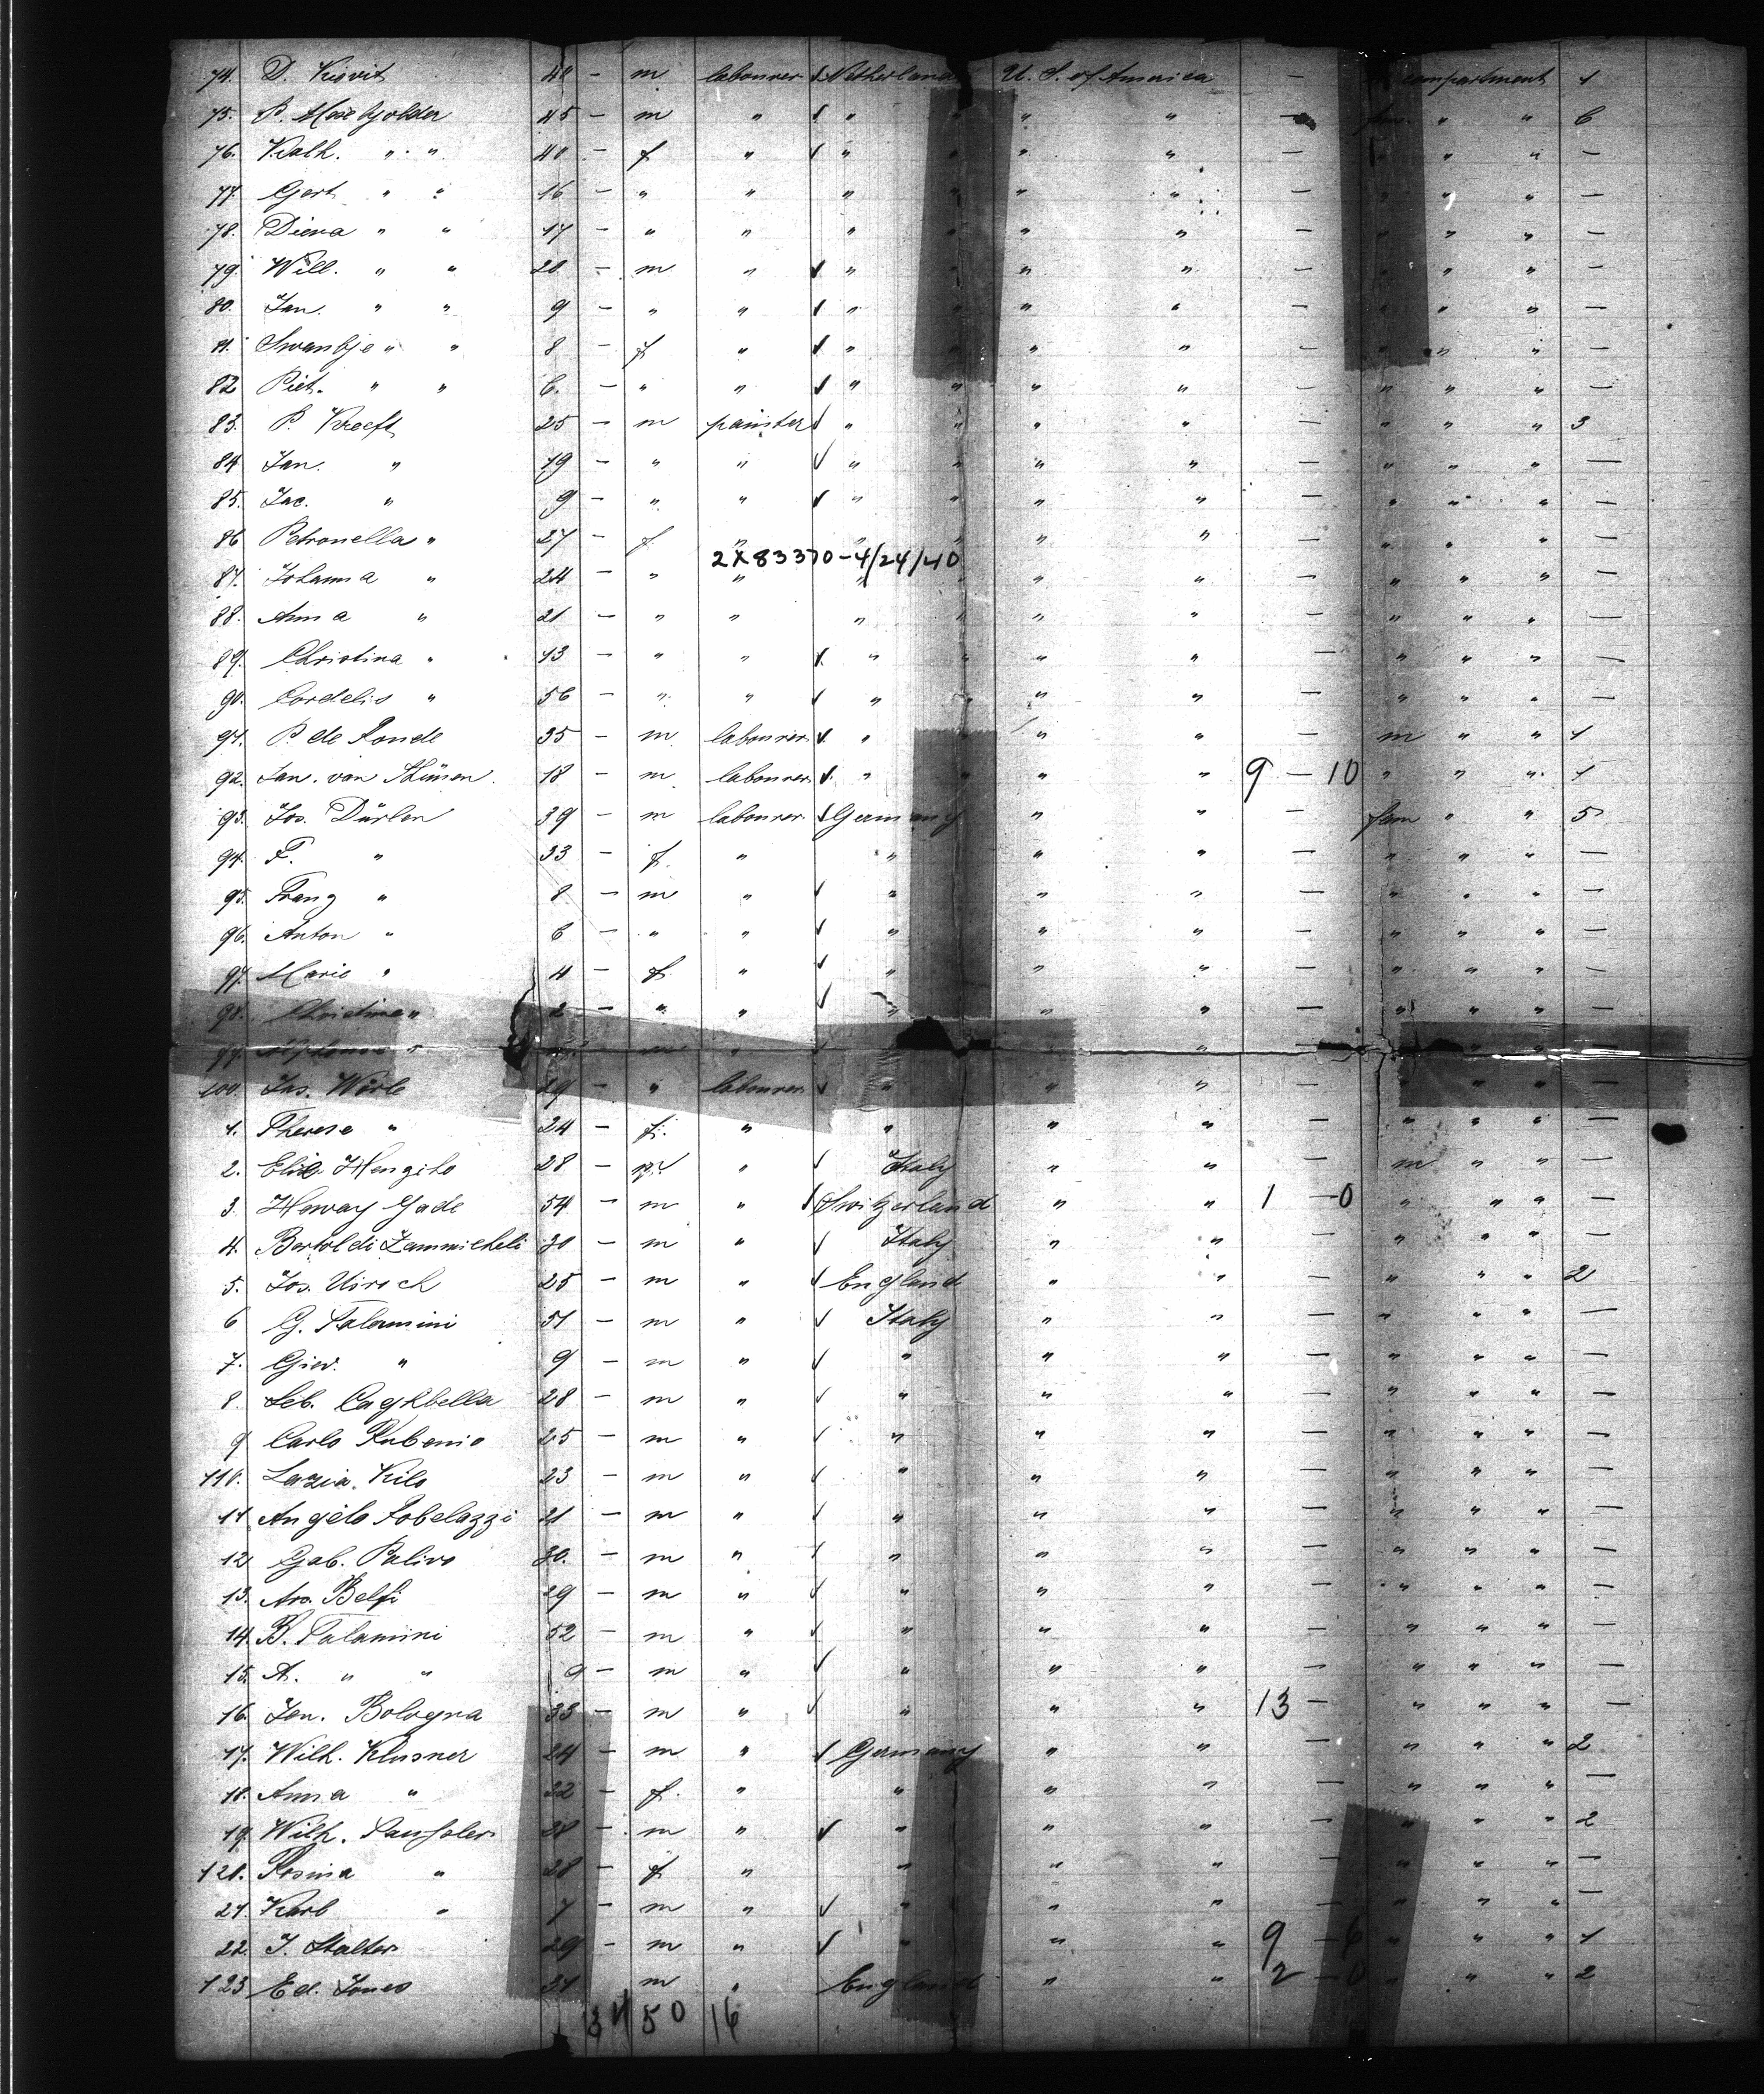 74. D. Kisvit 40 - m labourer √ Netherland U. S. of America - compartment 1
75. P. 45 - m " √ " " " " " " 6
76. Kath. " " 40 - f " √ " " " " - " " " -
77. Gert " " 16 - " " " " " " - " " " -
78. Diena " " 17 - " " " " " " - " " " -
79. Will. " " 20 - m " √ " " " " - " " " -
80. Jan. " " 9 - " " √ " " " " - " " " -
81. Swantje " " 8 - f " √ " " " " - " " " -
82 Piet. " " 6. - " " √ " " " " - " " " -
83. P. Kroeft 25 - m painter √ " " " " - " " " 3
84 Jan. " 19 - " " √ " " " " - " " " -
85. Jac. " 9 - " " √ " " " " - " " " -
86 Petronella " 27 - f " " " " - " " " -
2X83370-4/24/40
87. Johanna " 24 - " " " " " - " " " -
88. Anna " 21 - " " " " " " - " " " -
89. Christina " 13 - " " √ " " " " - " " " -
90. Cordelis " 56 - " " √ " " " " - " " " -
91. P. de Ronde 35 - m labourer √ " " " - m " " 1
92. Jan. van 18 - m labourer √ " " " " 9 - 10 " " " 1
93. Jos. Dürlen 39 - m labourer √ Germany " " - fam " " 5
94. F. " 33 - f. " " " " - " " " -
95. Franz " 8 - m " √ " " " - " " " -
96. Anton " 6 - " " √ " " " - " " " -
97. Marie " 4 - f. " √ " " " - " " " -
98. Christine " 2 - " " √ " " - " " " -
99. " " √ " " " -
100. Jos. Wörle 29 - " labourer √ " " " - " " " -
1. Therese " 24 - f. " " " " - " " " -
2. Elia 28 - " √ Italy " " - m " " -
3. Gade 54 - m " √ Switzerland " " 1 - 0 " " " -
4. Bertoldi Zammicheli 30 - m " √ Italy " " - " " " -
5. Jos. 25 - m " √ England " " - " " " 2
6 G. Talamini 51 - m " √ Italy " " - " " " -
7. Giov. " 9 - m " √ " " " - " " " -
8. Seb. 28 - m " √ " " " - " " " -
9 Carlo Rubenio 25 - m " √ " " " - " " " -
110. Lazia. Kilo 23 - m " √ " " " - " " " -
11 Angelo 21 - m " √ " " " - " " " -
12 Gab. Palivo 30. - m " √ " " " - " " " -
13. Belfi 29 - m " √ " " " - " " " -
14. B. Talamini 52 - m " √ " " " - " " " -
15. A. " " 9 - m " √ " " " - " " " -
16. Jan. Bologna 33 - m " √ " " " 13 - " " " -
17. Wilh. Klusner 24 - m " √ Germany " " - " " " 2
18. Anna " 22 - f. " " " " - " " " -
19. Wilh. 28 - m " √ " " " - " " " 2
120. Rosina " 28 - f " " " " - " " " -
21. Karl " 7 - m " √ " " " - " " " -
22. J. Stalter 29 - m " √ " " " 9 - 6 " " " 1
123 Ed. Jones 31 m " England " " 2 - 0 " " " 2
34 50 16